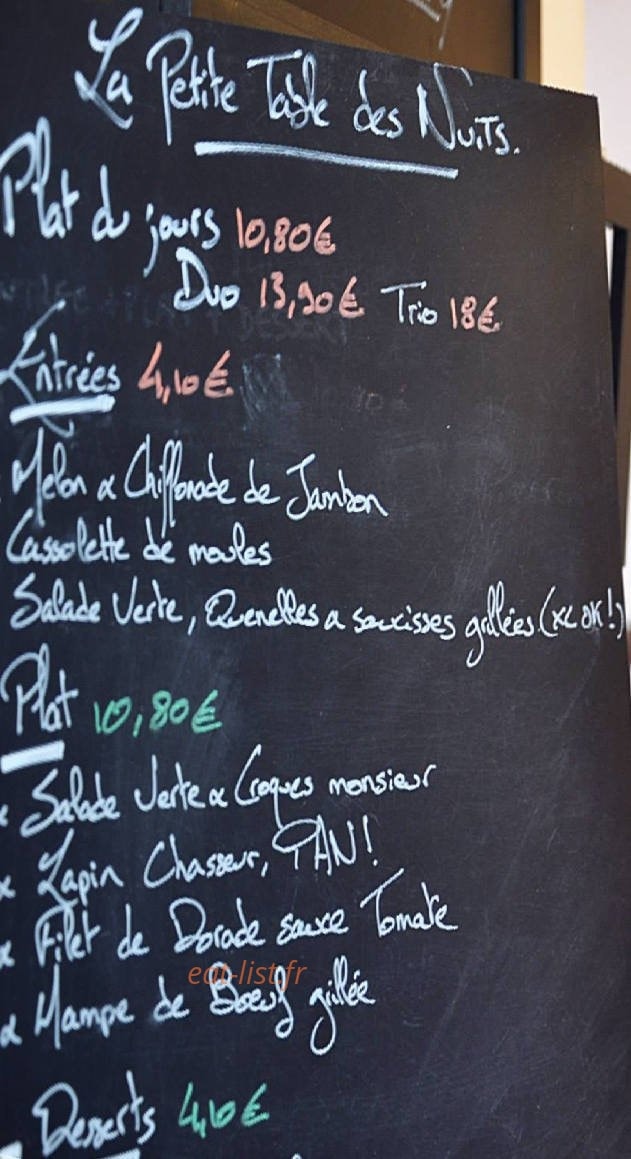 La Petite Table des Nuits.
Plat du jours 10,80€
Duo 13,90€ Trio 18€
Entrées 4,10€
Melon & Chiffonade de Jambon
Cassolette de moules
Salade Verte, Quenelles & saucisses grillées (XL OK!)
Plat 10,80€
x Salade Verte & Croques monsieur
x Lapin Chasseur, PAN!
x Filet de Dorade sauce Tomate
eat-list.fr
x Hampe de Boeuf grillée
Desserts 4,10€